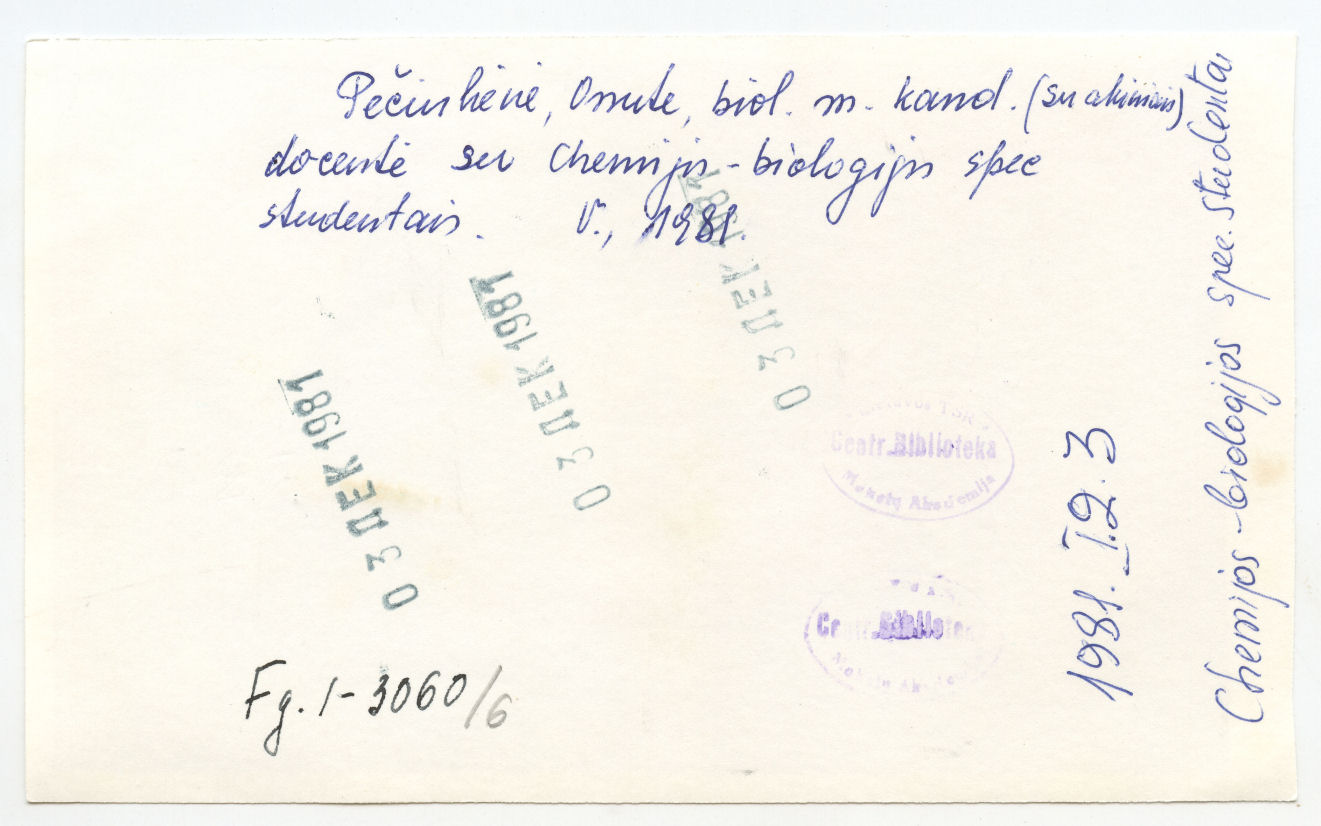 Pečiulienė, Onutė, biol. m. kand. (su akiniais)
docentė su Chemijos-biologijos spec
studentais. V., 1981.
0 3 ДЕК 1981
0 3 ДЕК 1981
0 3 ДЕК 1981
Lietuvos TSR
Centr. Biblioteka
Mokslų Akademija
Centr. Biblioteka
Fg. 1-3060/6
1981. 12. 3
Chemijos-biologijos spec. studentai